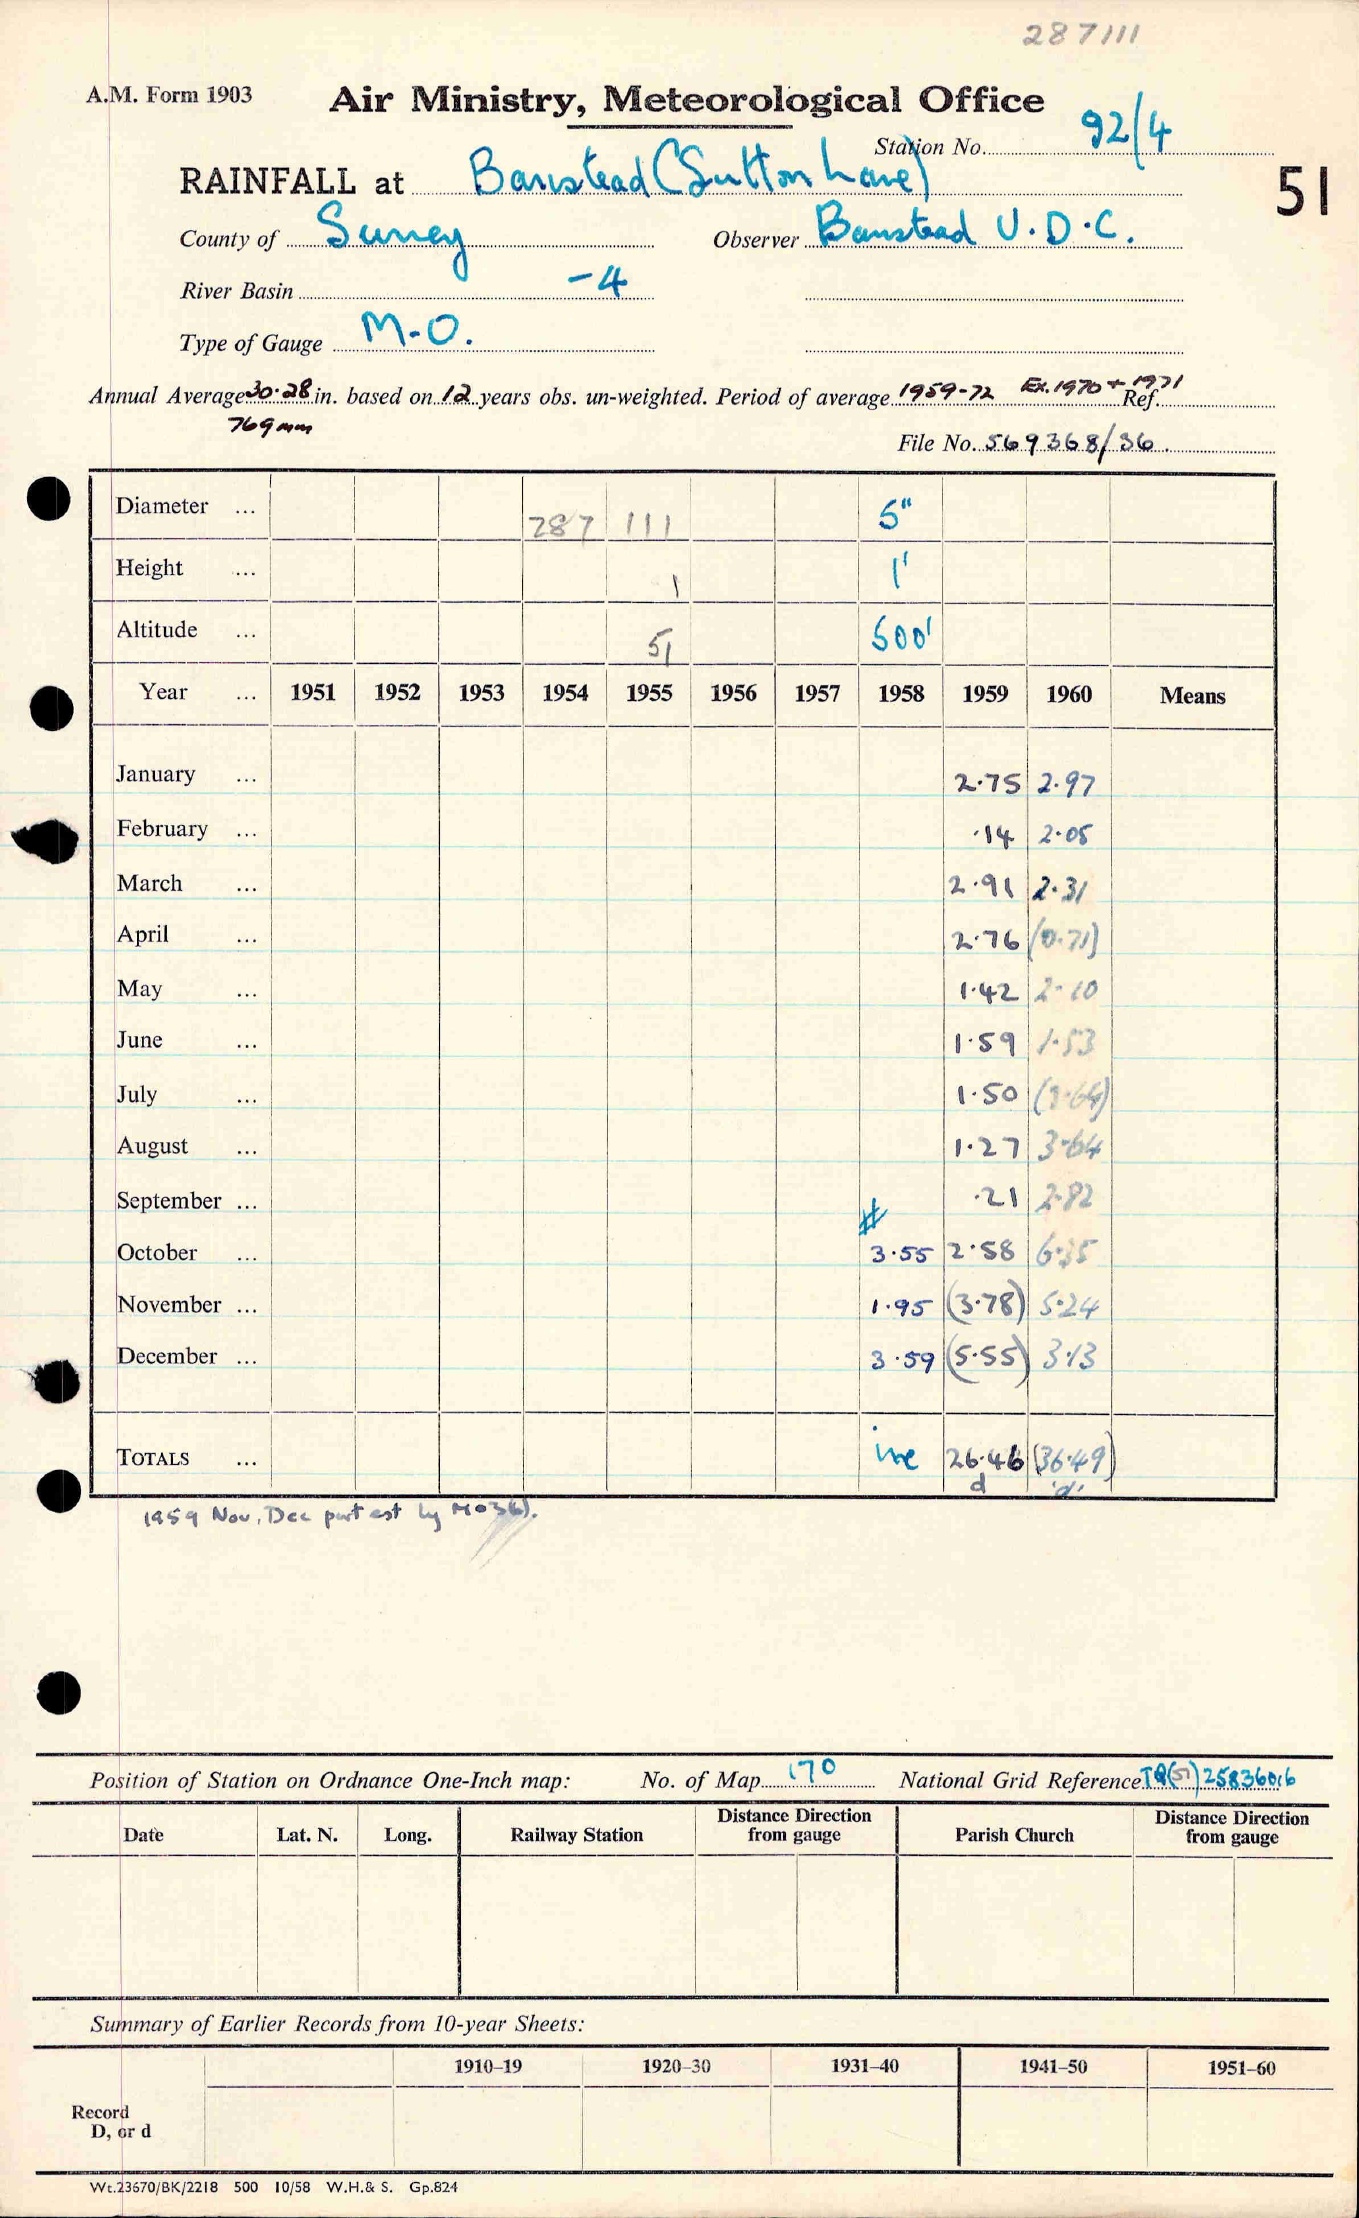 287111
A.M. Form 1903
Air Ministry, Meteorological Office
Station No. 92/4
RAINFALL at Banstead (Sutton Lane)
51
County of Surrey Observer Banstead U.D.C.
River Basin -4
Type of Gauge M.O.
Annual Average 30.28 in. based on 12 years obs. un-weighted. Period of average 1959-72 Ex. 1970 + 1971 Ref.
769mm
File No. 569368/36.
Diameter ... 287 111 5"
Height ... 1 1'
Altitude ... 51 500'
Year ... 1951 1952 1953 1954 1955 1956 1957 1958 1959 1960 Means
January ... 2.75 2.97
February ... .14 2.05
March ... 2.91 2.31
April ... 2.76 (0.71)
May ... 1.42 2.10
June ... 1.59 1.53
July ... 1.50
August ... 1.27 3.64
September ... .21 2.82
#
October ... 3.55 2.58 6.35
November ... 1.95 (3.78) 5.24
December ... 3.59 (5.55) 3.13
TOTALS ... inc 26.46 (36.49)
d 'd'
1959 Nov, Dec part est by MO3(b).
Position of Station on Ordnance One-Inch map: No. of Map 170 National Grid Reference TQ(51)25836016
Date Lat. N. Long. Railway Station Distance Direction from gauge Parish Church Distance Direction from gauge
Summary of Earlier Records from 10-year Sheets:
1910–19 1920–30 1931–40 1941–50 1951–60
Record
D, or d
Wt.23670/BK/2218 500 10/58 W.H.& S. Gp.824